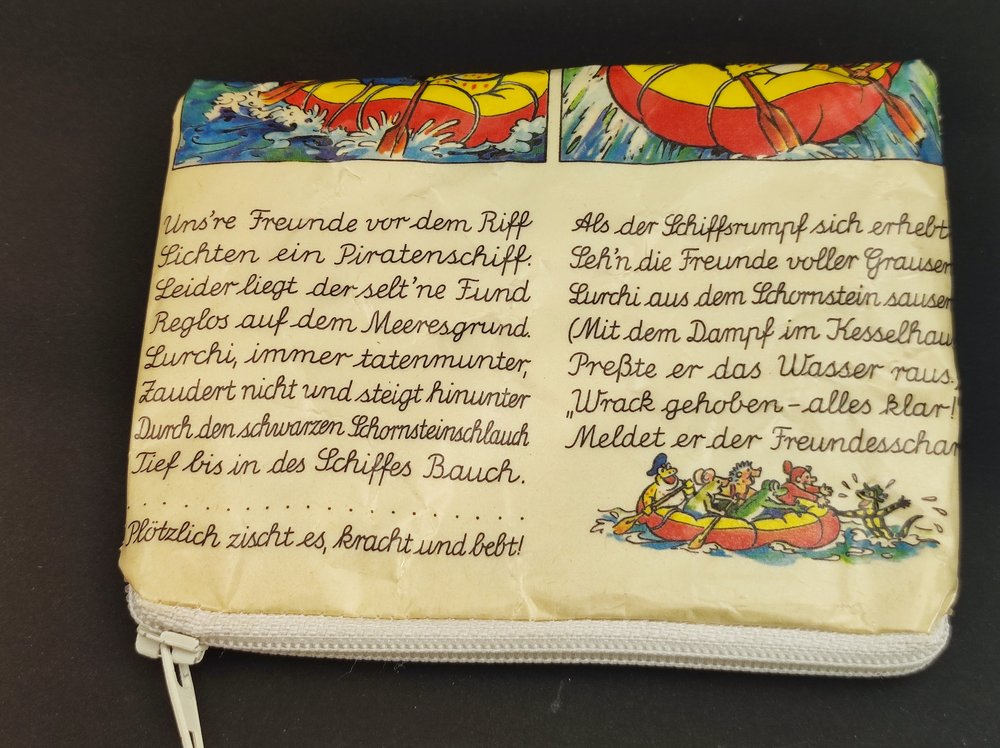 Uns're Freunde vor dem Riff
Sichten ein Piratenschiff.
Leider liegt der selt'ne Fund
Reglos auf dem Meeresgrund.
Lurchi, immer tatenmunter,
Zaudert nicht und steigt hinunter
Durch den schwarzen Schornsteinschlauch
Tief bis in des Schiffes Bauch.
. . . . . . . . . . . . . . . . . . . . .
Plötzlich zischt es, kracht und bebt!
Als der Schiffsrumpf sich erhebt
Seh'n die Freunde voller Grausen
Lurchi aus dem Schornstein sausen
(Mit dem Dampf im Kesselhau
Preßte er das Wasser raus.)
„Wrack gehoben – alles klar!"
Meldet er der Freundesschar